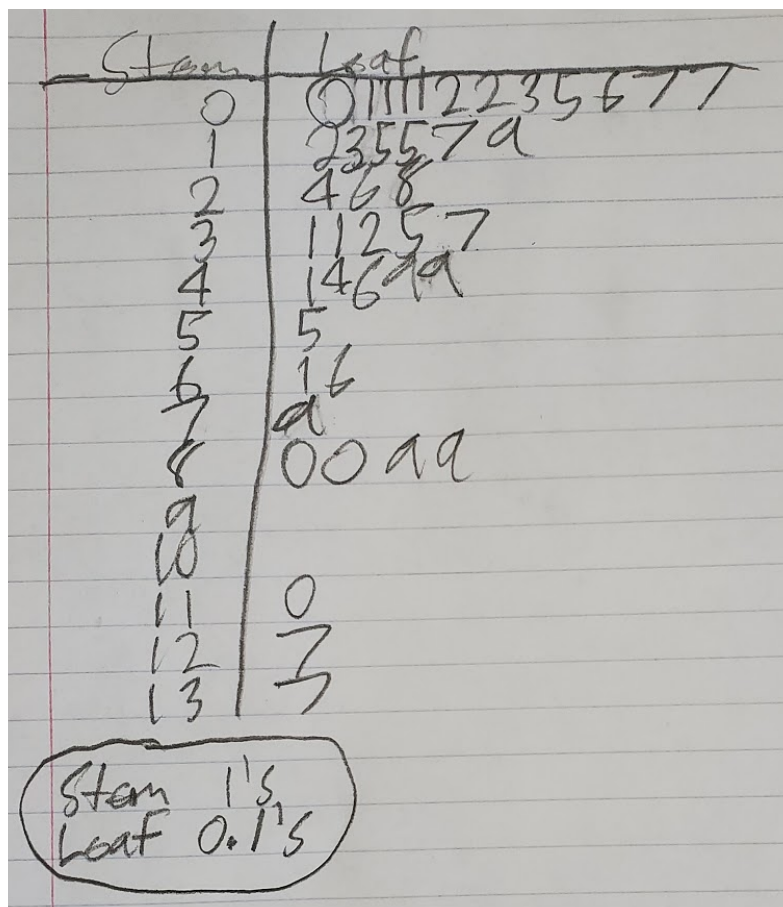 Stem Leaf
0 011112235677
1 235579
2 468
3 11257
4 14699
5 5
6 16
7 9
8 0099
9
10
11 0
12 7
13 7
Stem 1's
Leaf 0.1's